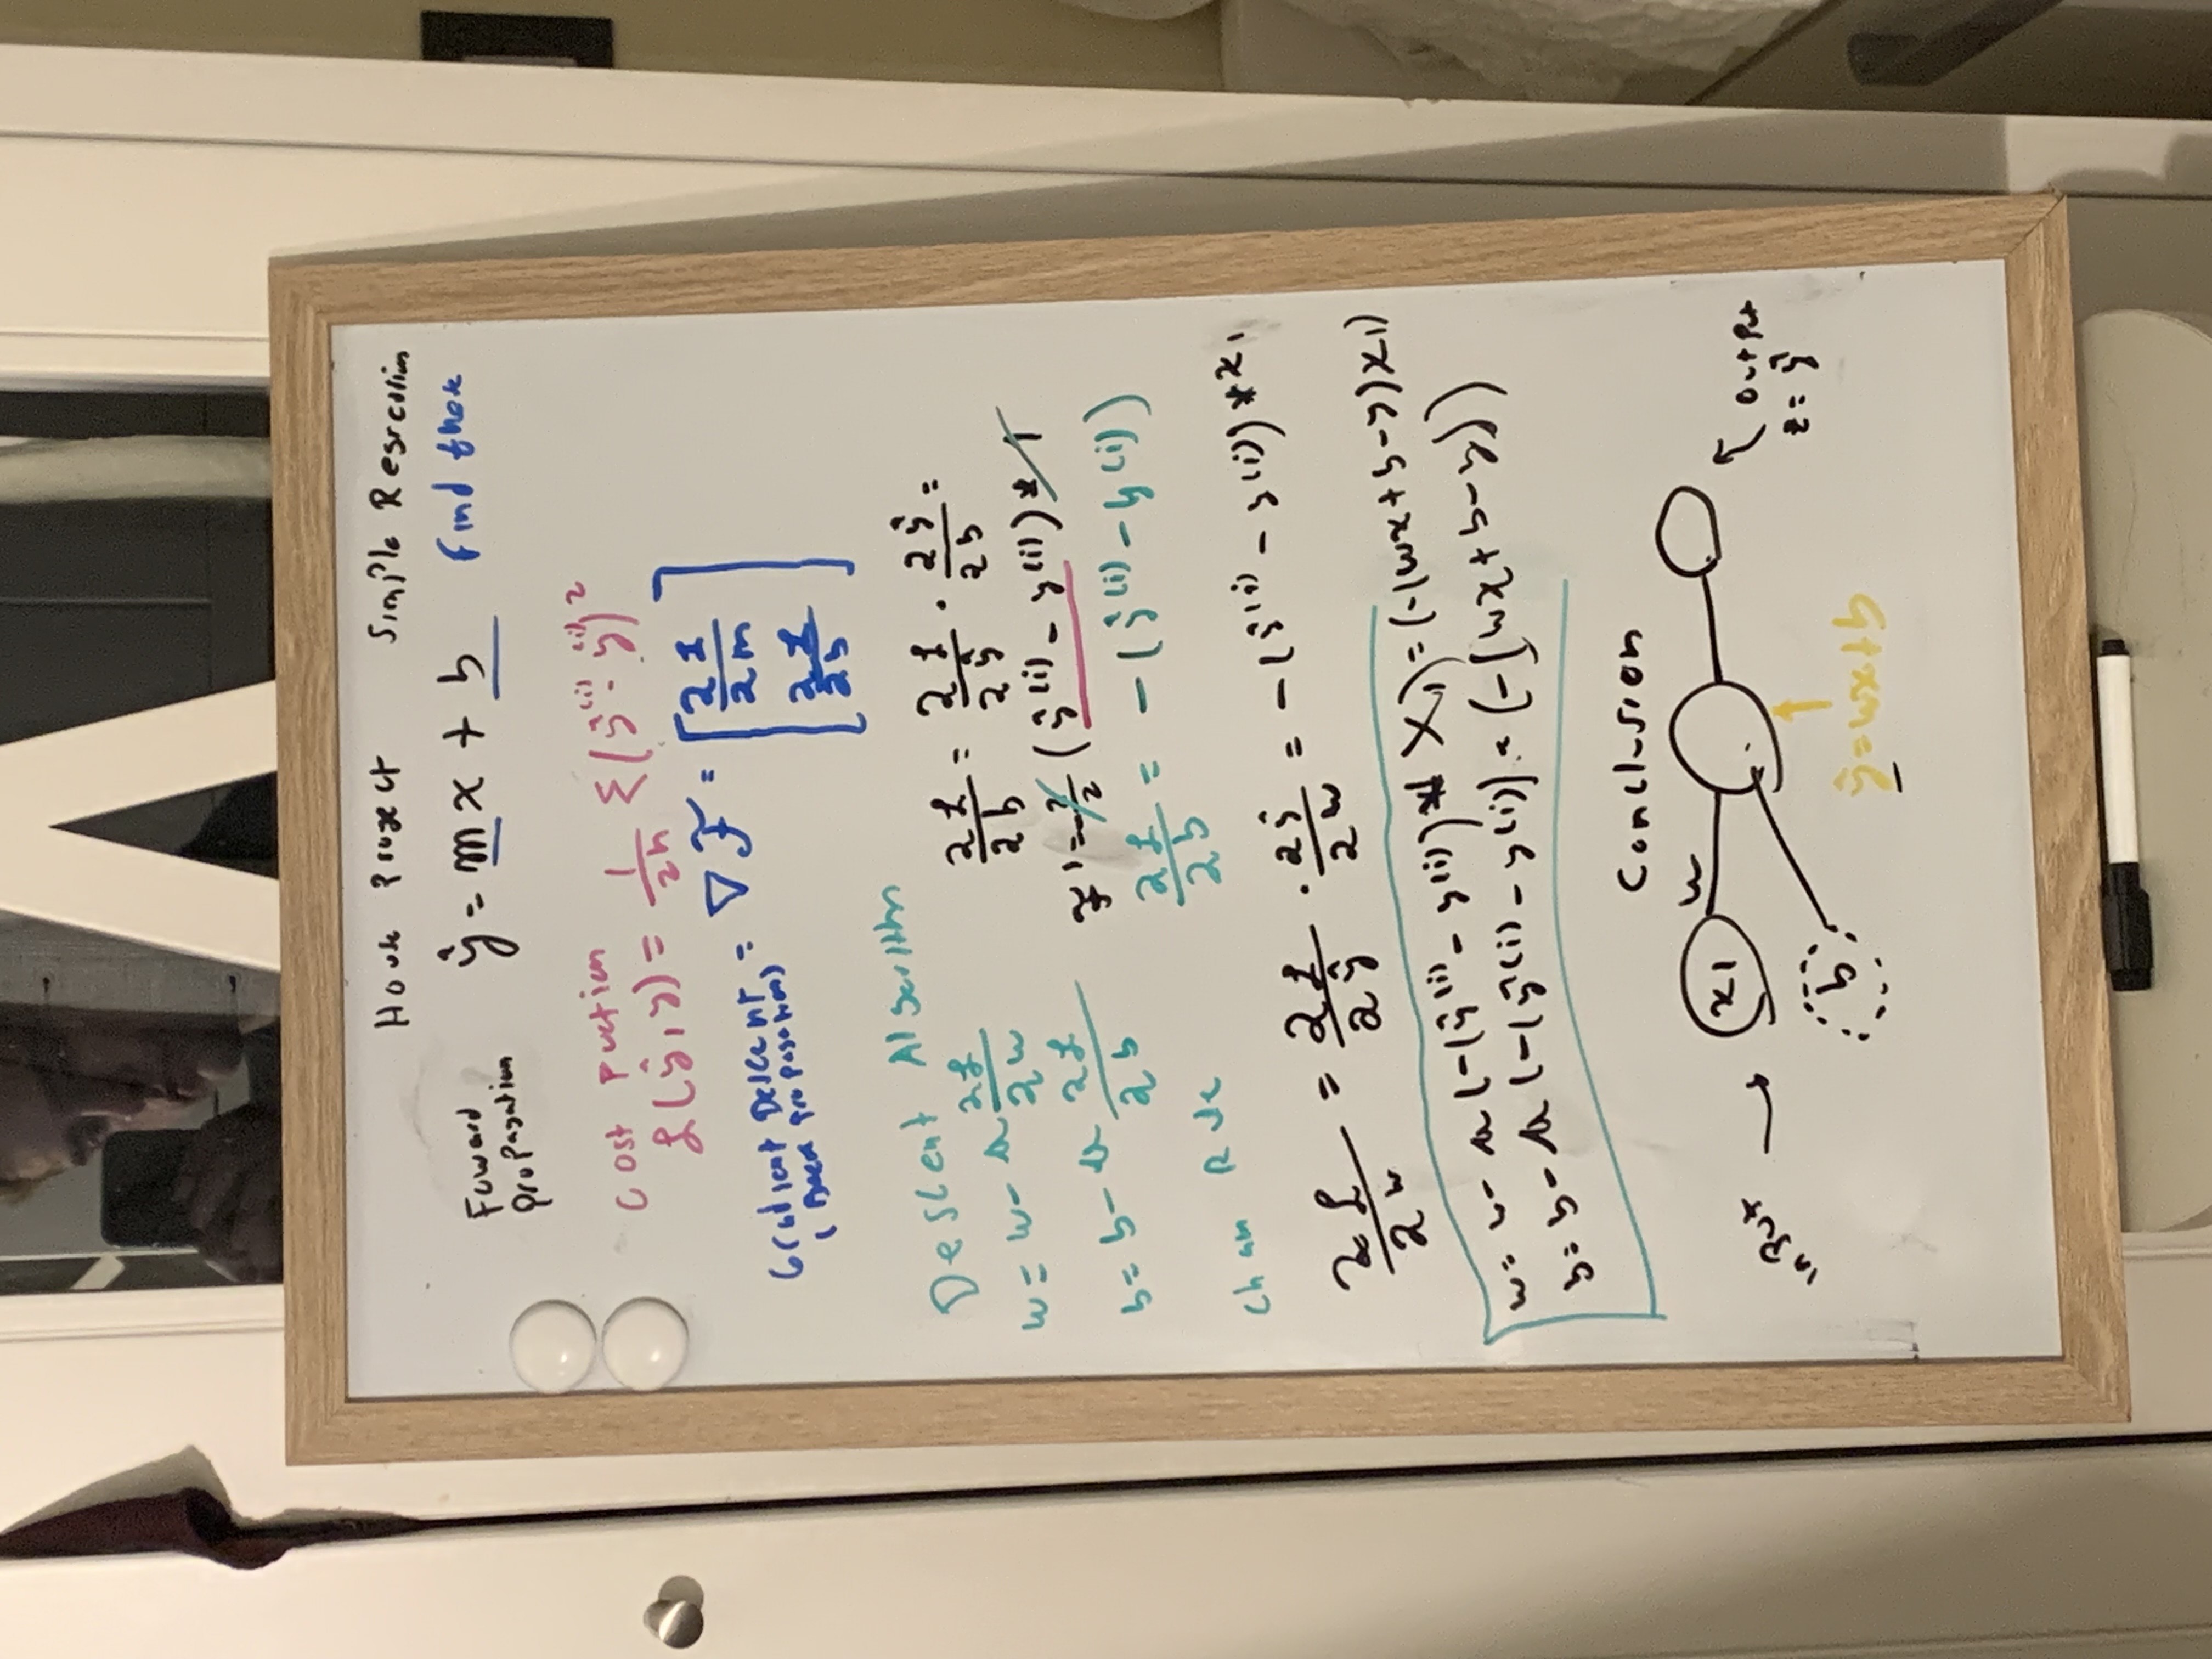 House Project Simple Regression
Foward
Propagation
ŷ = mx + b Find these
Cost Fuction
ℒ(ŷ, y) = 1/2n Σ(ŷ⁽ⁱ⁾ - y⁽ⁱ⁾)²
Gradient Descent
(Back Propagation) = ∇F = [∂ℒ/∂m
∂ℒ/∂b]
Descent Algorithm
w = w - α ∂ℒ/∂w
b = b - α ∂ℒ/∂b
Chain Rule
∂ℒ/∂b = ∂ℒ/∂ŷ · ∂ŷ/∂b =
F' = -2/2 (ŷ⁽ⁱ⁾ - y⁽ⁱ⁾) * 1
∂ℒ/∂b = -(ŷ⁽ⁱ⁾ - y⁽ⁱ⁾)
∂ℒ/∂w = ∂ℒ/∂ŷ · ∂ŷ/∂w = -(ŷ⁽ⁱ⁾ - y⁽ⁱ⁾) * x₁
w = w - α(-(ŷ⁽ⁱ⁾ - y⁽ⁱ⁾) * X₁) = (-(wx + b - y)x₁)
b = b - α(-(ŷ⁽ⁱ⁾ - y⁽ⁱ⁾)) = (-(wx + b - y))
Conclusion
x₁ w
input →
b
ŷ = wx + b
output
z = ŷ